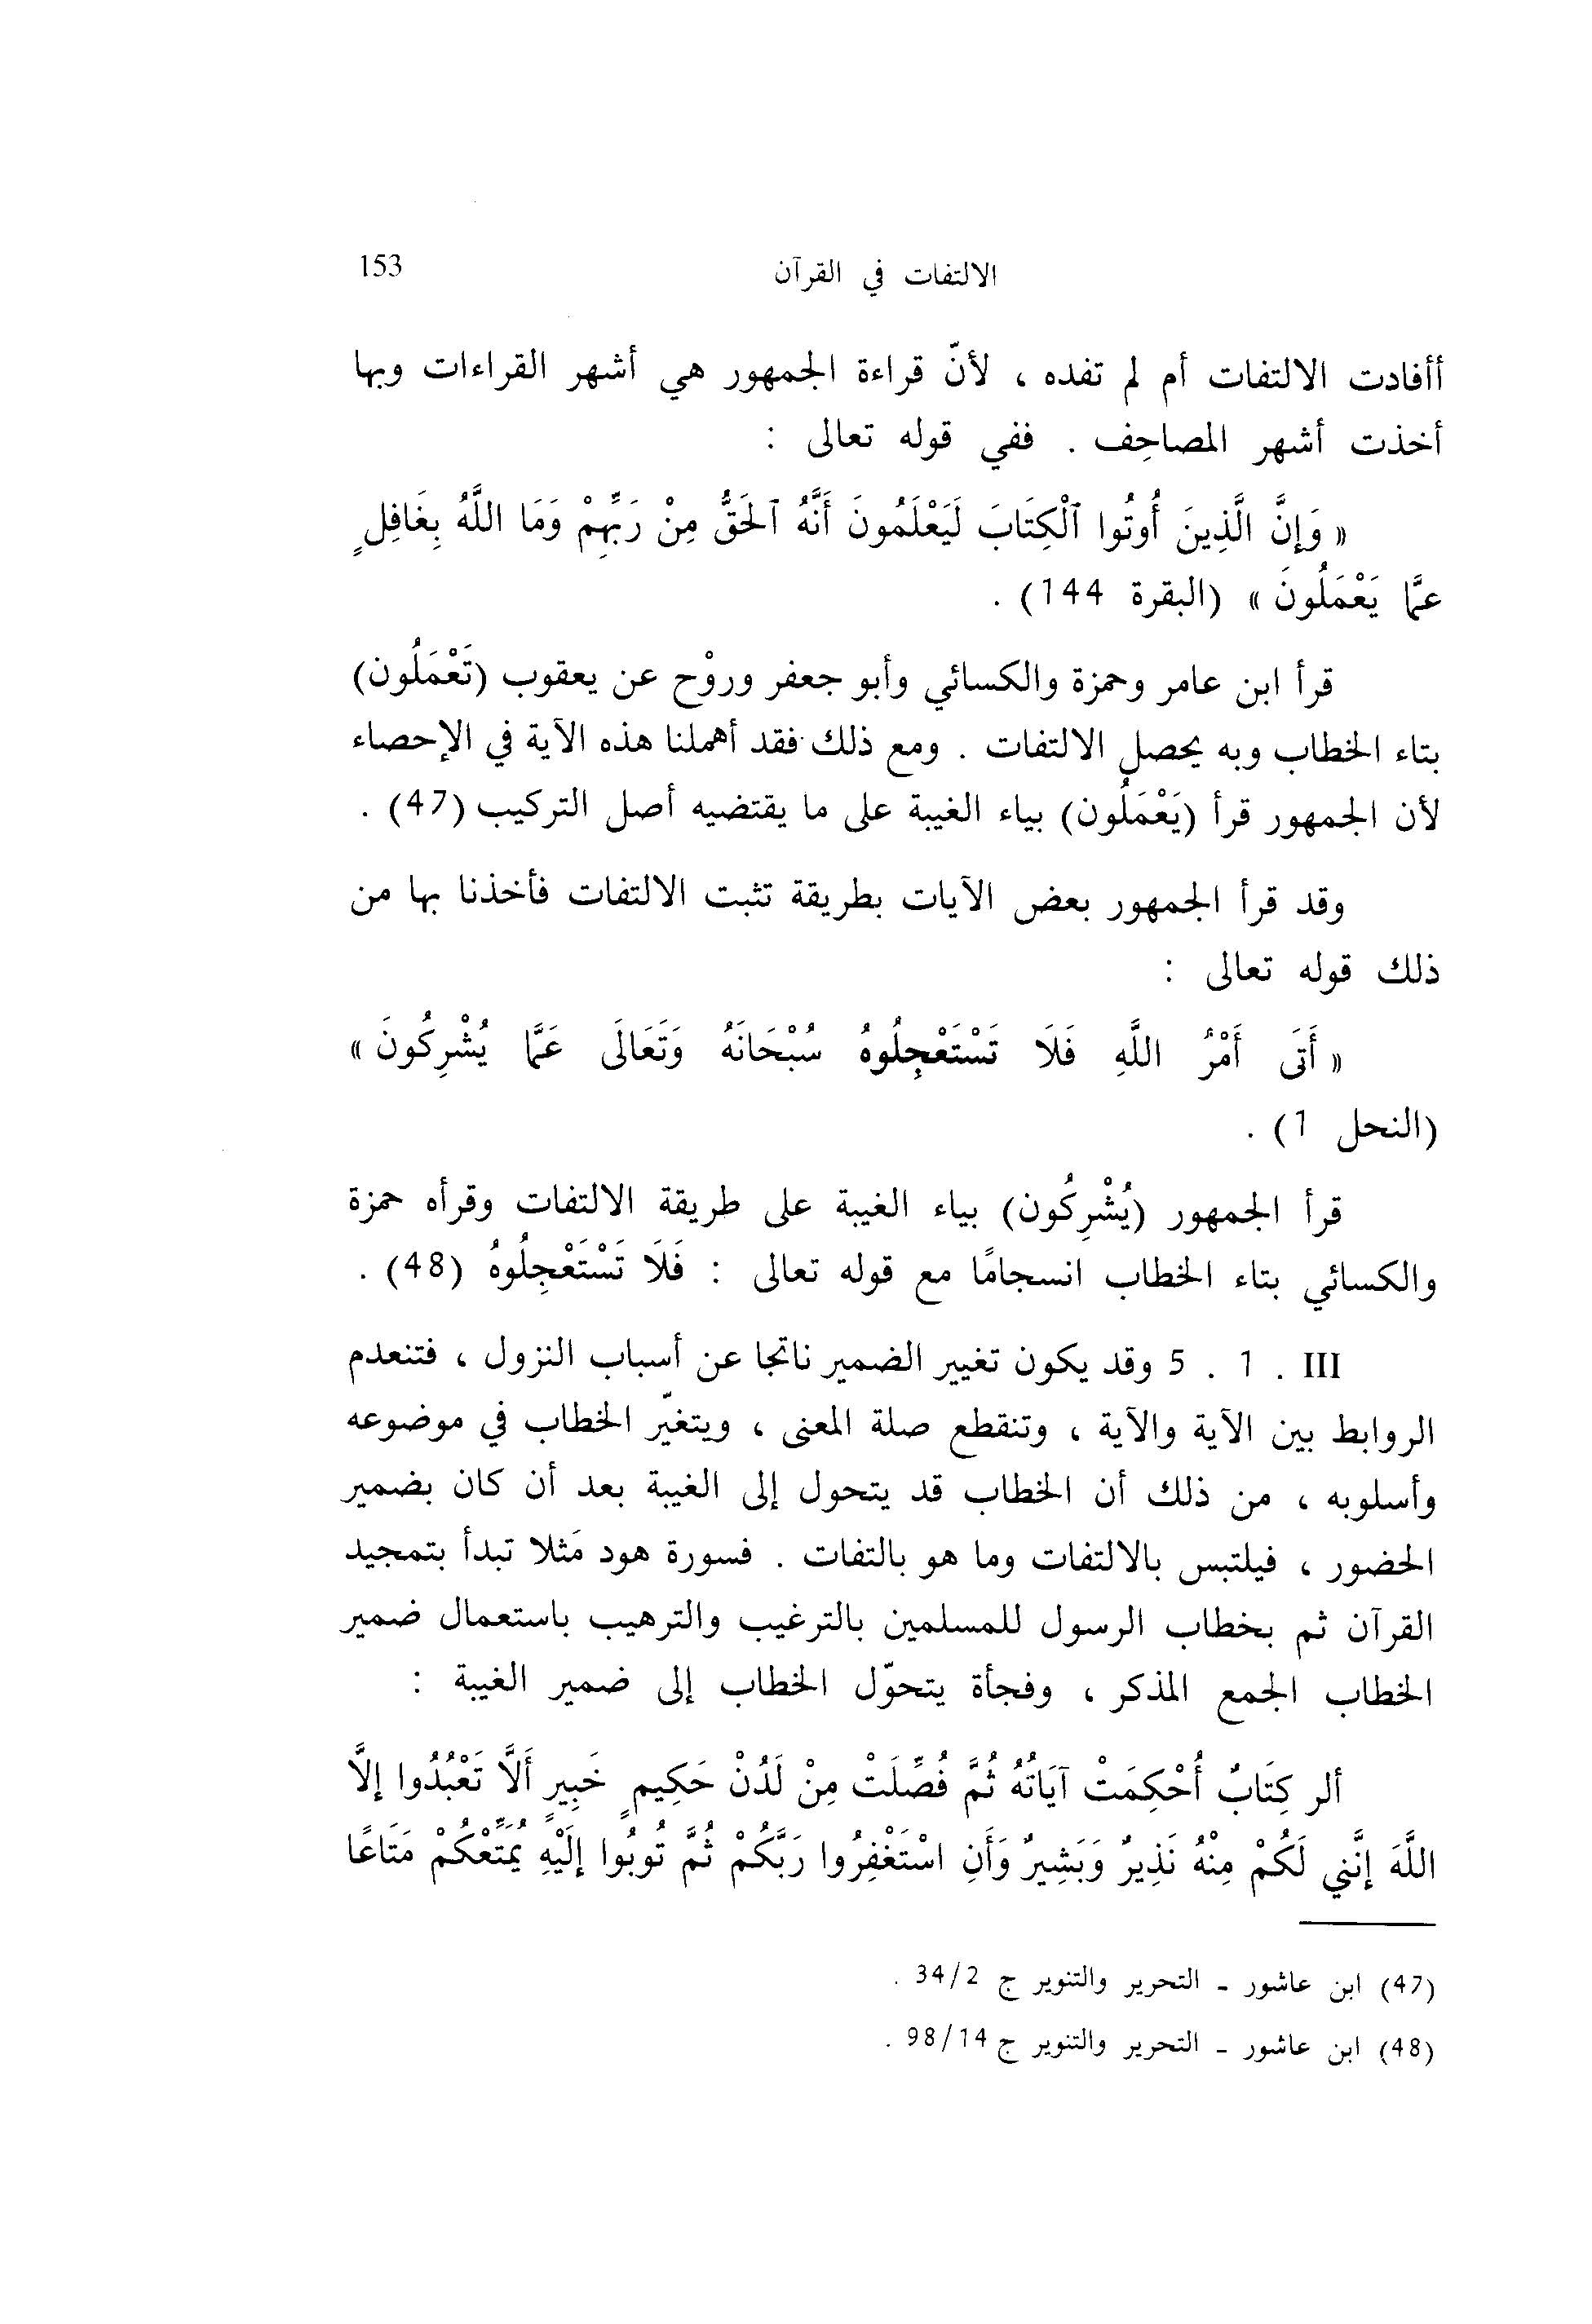 الالتفات في القرآن 153
أأفادت الالتفات أم لم تفده ، لأنّ قراءة الجمهور هي أشهر القراءات وبها
أخذت أشهر المصاحِف . ففي قوله تعالى :
« وَإِنَّ الَّذِينَ أُوتُوا ٱلْكِتَابَ لَيَعْلَمُونَ أَنَّهُ ٱلحَقُّ مِنْ رَبِّهِمْ وَمَا اللَّهُ بِغَافِلٍ
عمَّا يَعْمَلُونَ » (البقرة 144) .
قرأ ابن عامر وحمزة والكسائي وأبو جعفر وروْح عن يعقوب (تَعْمَلُون)
بتاء الخطاب وبه يحصل الالتفات . ومع ذلك فقد أهملنا هذه الآية في الإحصاء
لأن الجمهور قرأ (يَعْمَلُون) بياء الغيبة على ما يقتضيه أصل التركيب (47) .
وقد قرأ الجمهور بعض الآيات بطريقة تثبت الالتفات فأخذنا بها من
ذلك قوله تعالى :
« أَتَى أَمْرُ اللَّهِ فَلَا تَسْتَعْجِلُوهُ سُبْحَانَهُ وَتَعَالَى عَمَّا يُشْرِكُونَ »
(النحل 1) .
قرأ الجمهور (يُشْرِكُون) بياء الغيبة على طريقة الالتفات وقرأه حمزة
والكسائي بتاء الخطاب انسجامًا مع قوله تعالى : فَلَا تَسْتَعْجِلُوهُ (48) .
III . 1 . 5 وقد يكون تغيير الضمير ناتجا عن أسباب النزول ، فتنعدم
الروابط بين الآية والآية ، وتنقطع صلة المعنى ، ويتغيّر الخطاب في موضوعه
وأسلوبه ، من ذلك أن الخطاب قد يتحول إلى الغيبة بعد أن كان بضمير
الحضور ، فيلتبس بالالتفات وما هو بالتفات . فسورة هود مَثلا تبدأ بتمجيد
القرآن ثم بخطاب الرسول للمسلمين بالترغيب والترهيب باستعمال ضمير
الخطاب الجمع المذكر ، وفجأة يتحوّل الخطاب إلى ضمير الغيبة :
ألر كِتَابٌ أُحْكِمَتْ آيَاتُهُ ثُمَّ فُصِّلَتْ مِنْ لَدُنْ حَكِيمٍ خَبِيرٍ أَلَّا تَعْبُدُوا إلَّا
اللَّهَ إنَّنِي لَكُمْ مِنْهُ نَذِيرٌ وَبَشِيرٌ وَأَنِ اسْتَغْفِرُوا رَبَّكُمْ ثُمَّ تُوبُوا إلَيْهِ يُمَتِّعْكُمْ مَتَاعًا
(47) ابن عاشور - التحرير والتنوير ج 34/2 .
(48) ابن عاشور - التحرير والتنوير ج 98/14 .